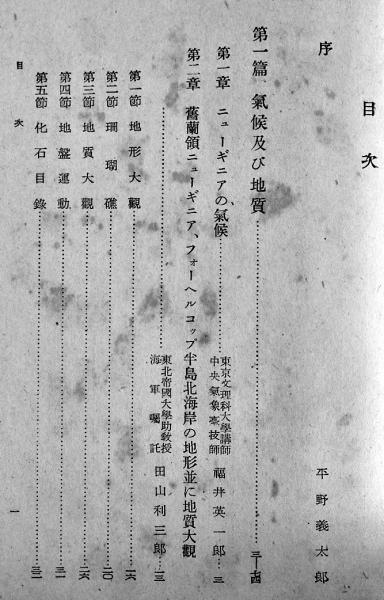 目次
序 平野義太郎
第一篇、氣候及び地質
第一章 ニューギニアの氣候
東京文理科大學講師
中央氣象臺技師
福井英一郎 三
第二章 舊蘭領ニューギニア、フォーヘルコップ半島北海岸の地形並に地質大觀
東北帝國大學助敎授
海軍囑託
田山利三郎 一三
第一節 地形大觀 一六
第二節 珊瑚礁 二〇
第三節 地質大觀 二六
第四節 地盤運動 三一
第五節 化石目錄 三二
目次 一